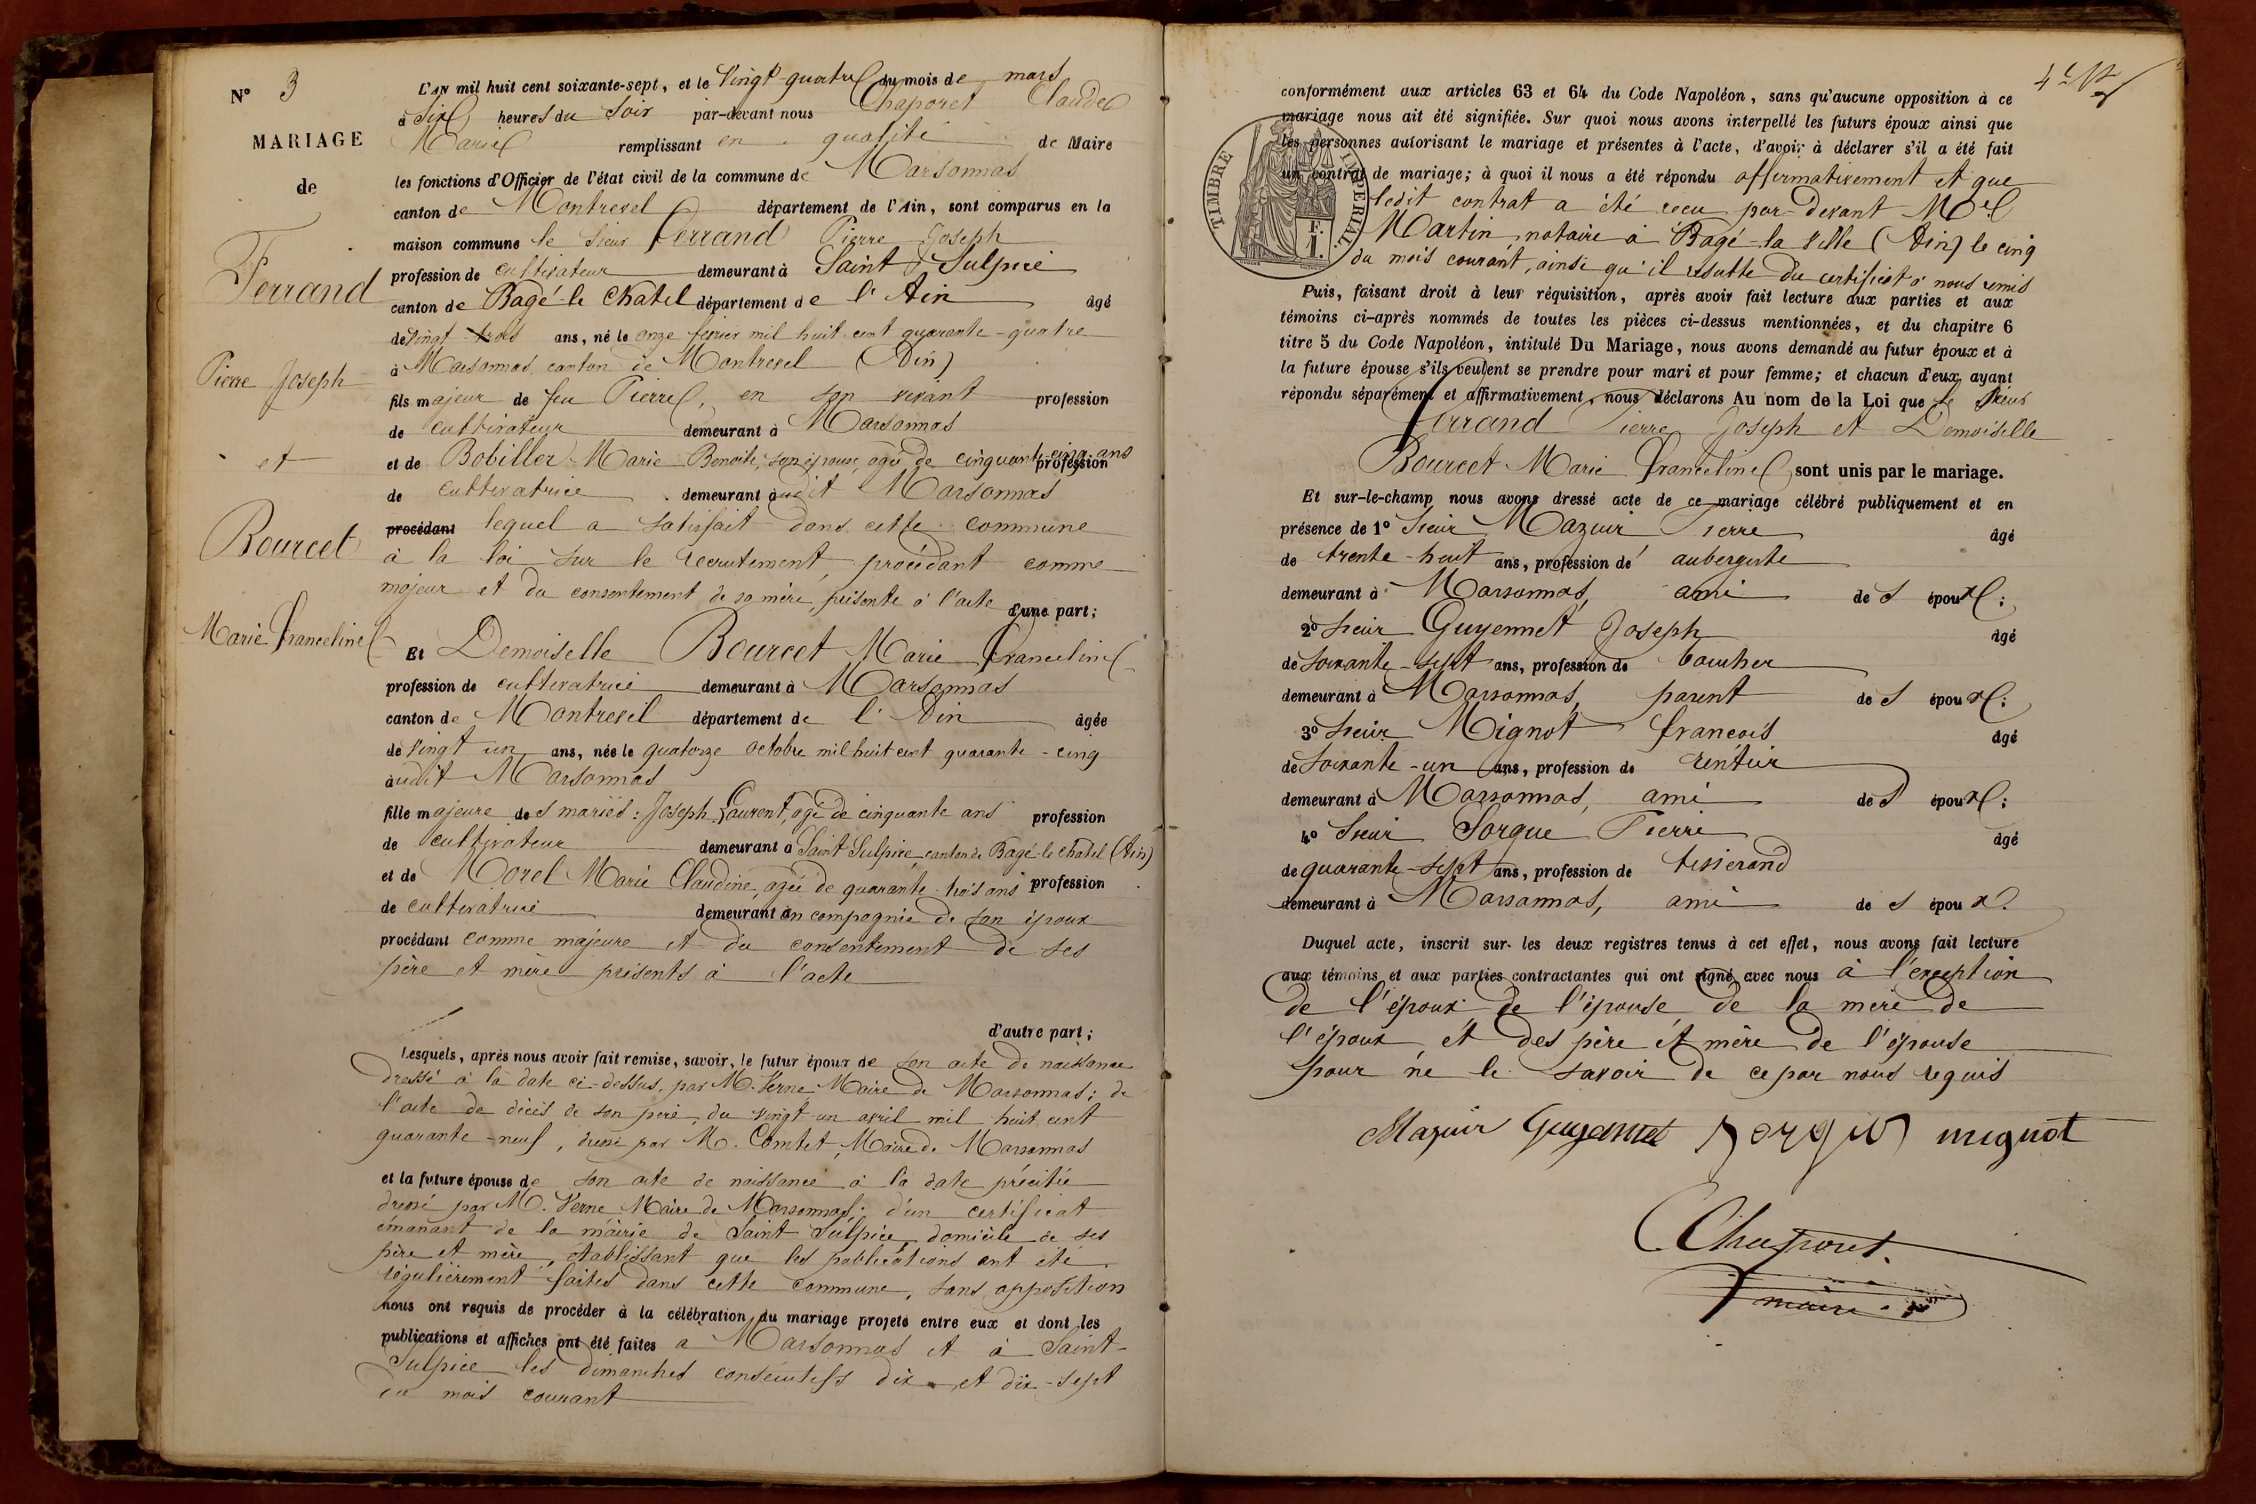 N° 3
MARIAGE
de
Ferrand
Pierre Joseph
et
Bourcet
Marie Franceline
L'an mil huit cent soixante-sept, et le Vingt-quatre du mois de mars
à Six heures du Soir par-devant nous Chaporet Claude
Marie remplissant en qualité de Maire
les fonctions d'Officier de l'état civil de la commune de Marsonnas
canton de Montrevel département de l'Ain, sont comparus en la
maison commune le Sieur Ferrand Pierre Joseph
profession de cultivateur demeurant à Saint Sulpice
canton de Bagé-le Chatel département de l'Ain âgé
de vingt-trois ans, né le onze février mil huit cent quarante-quatre
à Marsonnas canton de Montrevel (Ain)
fils majeur de feu Pierre, en son vivant profession
de cultivateur demeurant à Marsonnas
et de Bobiller Marie Benoite, son épouse, agée de cinquante-cinq ans profession
de cultivatrice demeurant audit Marsonnas
procédant lequel a satisfait dans cette commune
à la loi sur le recrutement, procédant comme
majeur et du consentement de sa mère, présente à l'acte d'une part;
Et Demoiselle Bourcet Marie Franceline
profession de cultivatrice demeurant à Marsonnas
canton de Montrevel département de l'Ain âgée
de vingt un ans, née le quatorze octobre mil huit cent quarante-cinq
audit Marsonnas
fille majeure des mariés: Joseph Laurent, agé de cinquante ans profession
de cultivateur demeurant à Saint Sulpice, canton de Bagé-le chatel (Ain)
et de Morel Marie Claudine, agée de quarante-trois ans profession
de cultivatrice demeurant en compagnie de son époux
procédant comme majeure et du consentement de ses
père et mère présents à l'acte
d'autre part;
Lesquels, après nous avoir fait remise, savoir, le futur époux de son acte de naissance
dressé à la date ci-dessus, par M. Verne Maire de Marsonnas; de
l'acte de décès de son père, du vingt-un avril mil huit cent
quarante-neuf, dressé par M. Comtet, Maire de Marsonnas
et la future épouse de son acte de naissance à la date précitée
dressé par M. Verne Maire de Marsonnas; d'un certificat
émanant de la mairie de Saint Sulpice, domicile de ses
père et mère, établissant que les publications ont été
régulièrement faites dans cette commune, sans opposition
nous ont requis de procéder à la célébration du mariage projeté entre eux et dont les
publications et affiches ont été faites à Marsonnas et à Saint-
Sulpice les dimanches consécutifs dix et dix-sept
du mois courant
conformément aux articles 63 et 64 du Code Napoléon, sans qu'aucune opposition à ce
mariage nous ait été signifiée. Sur quoi nous avons interpellé les futurs époux ainsi que
les personnes autorisant le mariage et présentes à l'acte, d'avoir à déclarer s'il a été fait
un contrat de mariage; à quoi il nous a été répondu affirmativement et que
ledit contrat a été reçu par-devant Me
Martin notaire à Bagé-la-ville (Ain) le cinq
du mois courant, ainsi qu'il résulte du certificat à nous remis
TIMBRE IMPERIAL
F.
1.
Puis, faisant droit à leur réquisition, après avoir fait lecture aux parties et aux
témoins ci-après nommés de toutes les pièces ci-dessus mentionnées, et du chapitre 6
titre 5 du Code Napoléon, intitulé Du Mariage, nous avons demandé au futur époux et à
la future épouse s'ils veulent se prendre pour mari et pour femme; et chacun d'eux ayant
répondu séparément et affirmativement, nous déclarons Au nom de la Loi que le Sieur
Ferrand Pierre Joseph et Demoiselle
Bourcet Marie Franceline sont unis par le mariage.
Et sur-le-champ nous avons dressé acte de ce mariage célébré publiquement et en
présence de 1° Sieur Mazuir Pierre âgé
de trente-huit ans, profession de aubergiste
demeurant à Marsonnas, ami des époux;
2° Sieur Guyennet Joseph âgé
de soixante-sept ans, profession de boucher
demeurant à Marsonnas, parent des époux;
3° Sieur Mignot françois âgé
de soixante-un ans, profession de rentier
demeurant à Marsonnas, ami des époux;
4° Sieur Sorgue Pierre âgé
de quarante-sept ans, profession de tisserand
demeurant à Marsonnas, ami des époux.
Duquel acte, inscrit sur les deux registres tenus à cet effet, nous avons fait lecture
aux témoins et aux parties contractantes qui ont signé avec nous à l'exception
de l'époux de l'épouse de la mère de
l'époux et des père et mère de l'épouse
pour ne le savoir de ce par nous requis
Mazuir Guyennet Sorgue mignot
Chaporet
maire